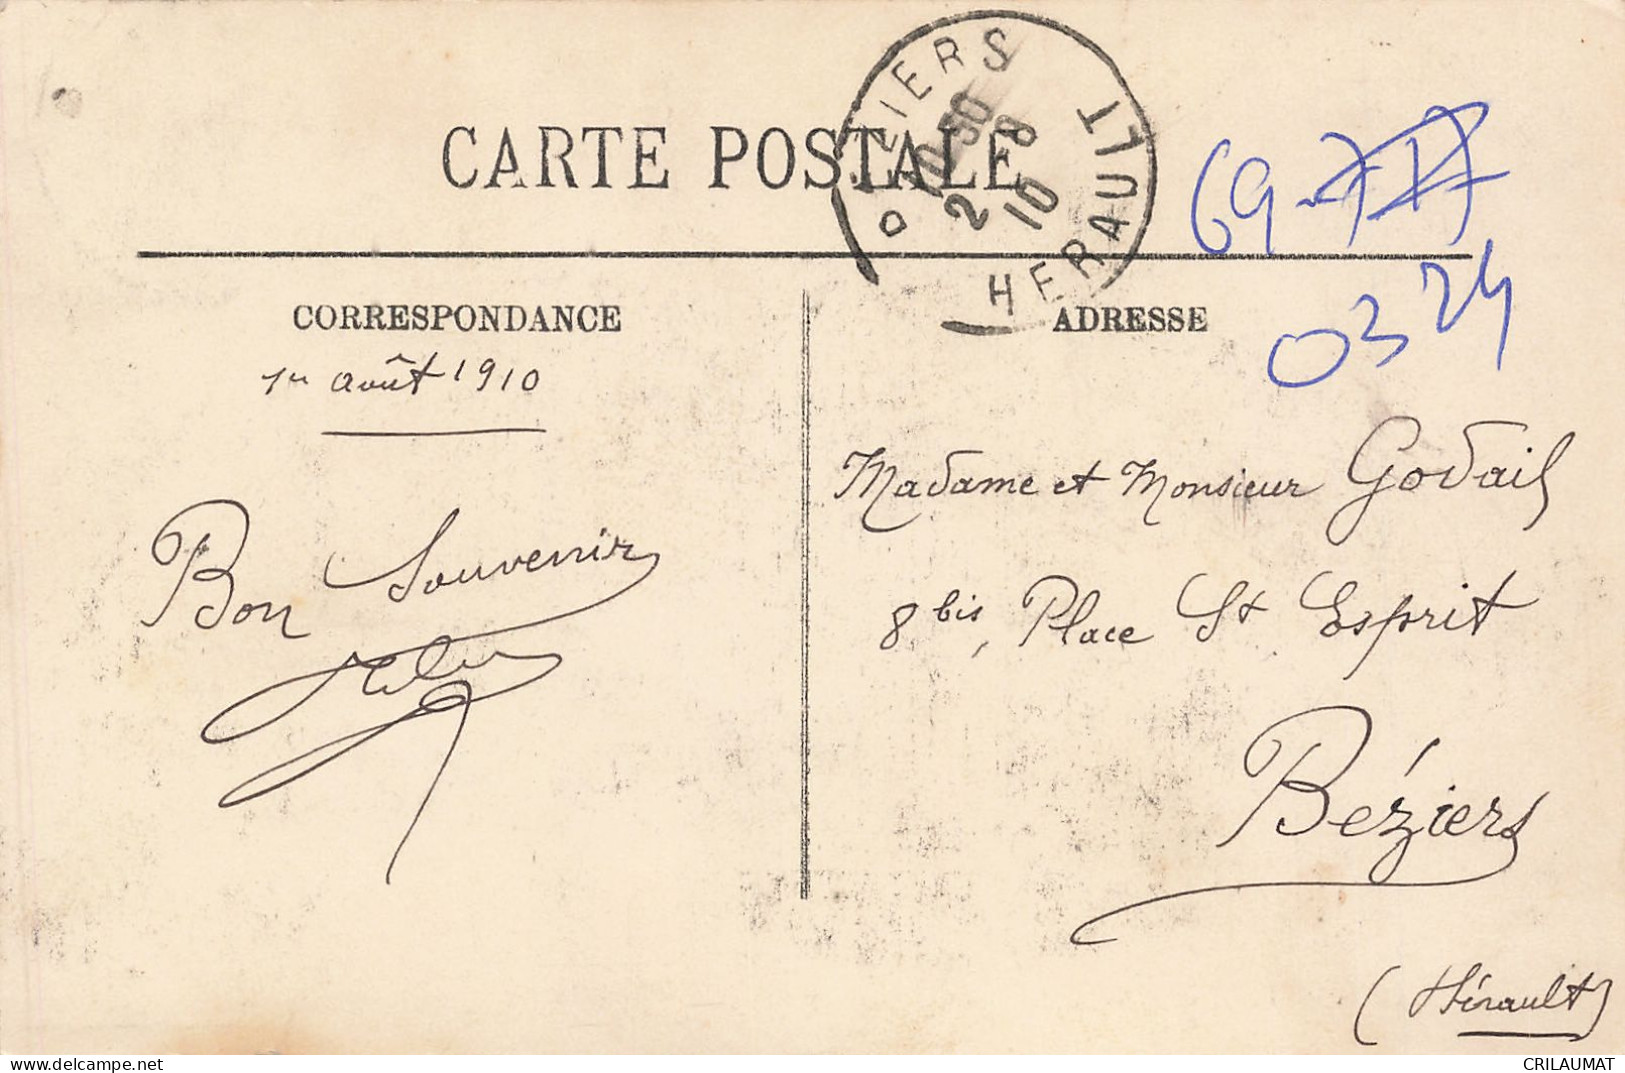 CARTE POSTALE
ZIERS
HERAULT
10 30
2 - 8
10
69
0324
CORRESPONDANCE
ADRESSE
1er août 1910
Bon Souvenir
Madame et Monsieur Godail
8 bis, Place St Esprit
Béziers
(Hérault)
CRILAUMAT